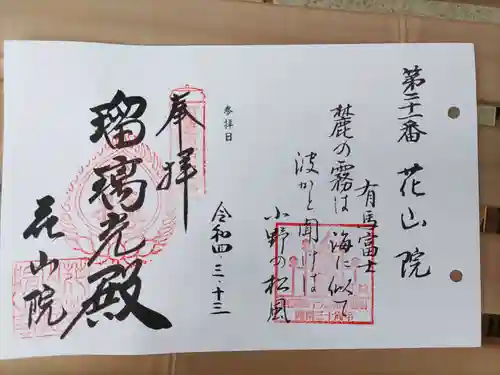 第二十一番 花山院
有馬富士
麓の霧は 海に似て
波かと聞けば
小野の松風
参拝日
令和四・三・十三
奉拝
瑠璃光殿
花山院